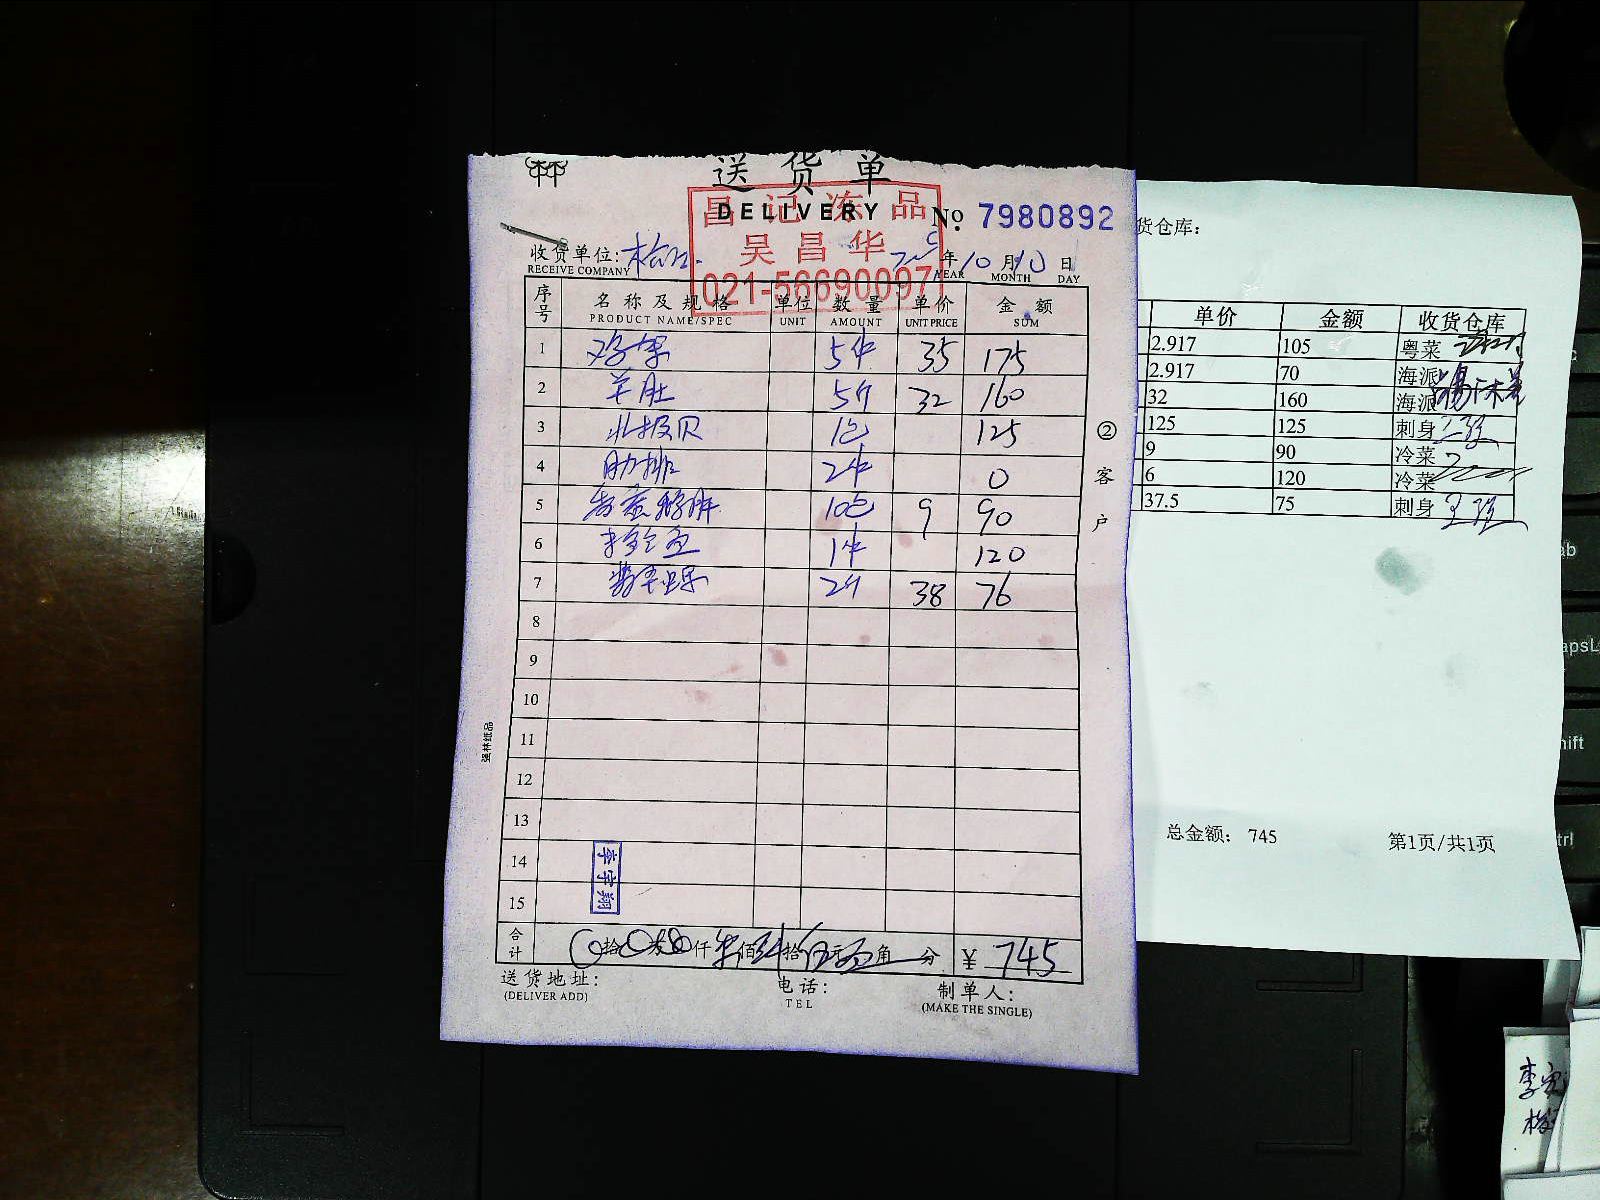 送货单
DELIVERY
昌记冻品
吴昌华
021-56690097
No. 7980892
收货单位:
年10月10日
RECEIVE COMPANY
YEAR MONTH DAY
序号 名称及规格 单位 数量 单价 金额
PRODUCT NAME/SPEC UNIT AMOUNT UNIT PRICE SUM
1 5件 35 175
2 羊肚 5个 32 160
3 北极贝 1包 125
4 肋排 2件 0
5 10包 9 90
6 1件 120
7 2个 38 76
8
9
10
11
12
13
14
15
李宇翔
合计 拾 万 仟 柒佰肆拾伍元 角 分 ¥ 745
送货地址: 电话: 制单人:
(DELIVER ADD) TEL (MAKE THE SINGLE)
②客户
强林纸品
货仓库:
单价 金额 收货仓库
2.917 105 粤菜
2.917 70 海派
32 160 海派
125 125 刺身
9 90 冷菜
6 120 冷菜
37.5 75 刺身
总金额: 745 第1页/共1页